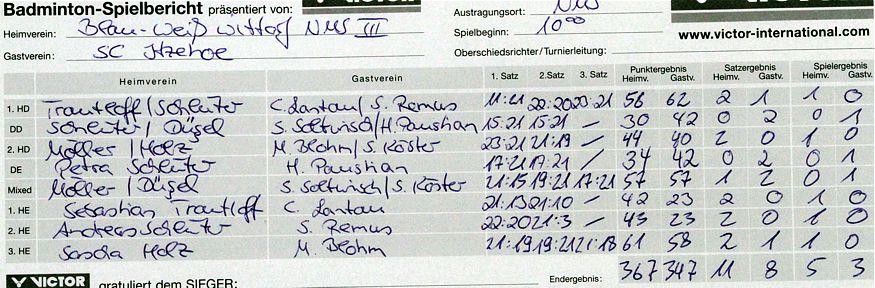 Badminton-Spielbericht präsentiert von:
Austragungsort: NMS
Heimverein: Blau-Weiß Wittorf NMS III
Spielbeginn: 10⁰⁰
www.victor-international.com
Gastverein: SC Itzehoe
Oberschiedsrichter/Turnierleitung:
Heimverein Gastverein 1. Satz 2. Satz 3. Satz Punktergebnis Heimv. Gastv. Satzergebnis Heimv. Gastv. Spielergebnis Heimv. Gastv.
1. HD Trautloff/Schleuter C. Lantau/S. Remus 11:21 22:20 23:21 56 62 2 1 1 0
DD Schleuter/Düsel S. Soltwisch/H. Paustian 15:21 15:21 / 30 42 0 2 0 1
2. HD Möller/Holz M. Blohm/S. Köster 23:21 21:19 / 44 40 2 0 1 0
DE Petra Schleuter H. Paustian 17:21 17:21 / 34 42 0 2 0 1
Mixed Möller/Düsel S. Soltwisch/S. Köster 21:15 19:21 17:21 57 57 1 2 0 1
1. HE Sebastian Trautloff C. Lantau 21:13 21:10 / 42 23 2 0 1 0
2. HE Andreas Schleuter S. Remus 22:20 21:3 / 43 23 2 0 1 0
3. HE Sascha Holz M. Blohm 21:19 19:21 21:18 61 58 2 1 1 0
VICTOR gratuliert dem SIEGER:
Endergebnis: 367 347 11 8 5 3